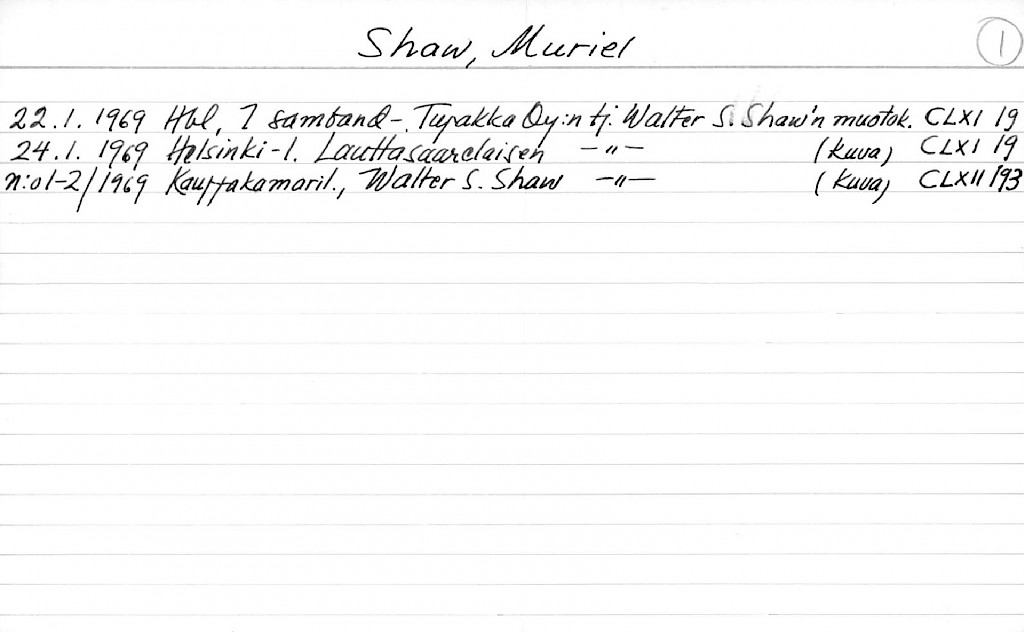 Shaw, Muriel
1
22.1. 1969 Hbl, I samband-. Tupakka Oy:n tj. Walter S. Shaw'n muotok. CLXI 19
24.1. 1969 Helsinki-l. Lauttasaarelaisen —"— (kuva) CLXI 19
n:o 1-2/1969 Kauppakamaril., Walter S. Shaw —"— (kuva) CLXII 193